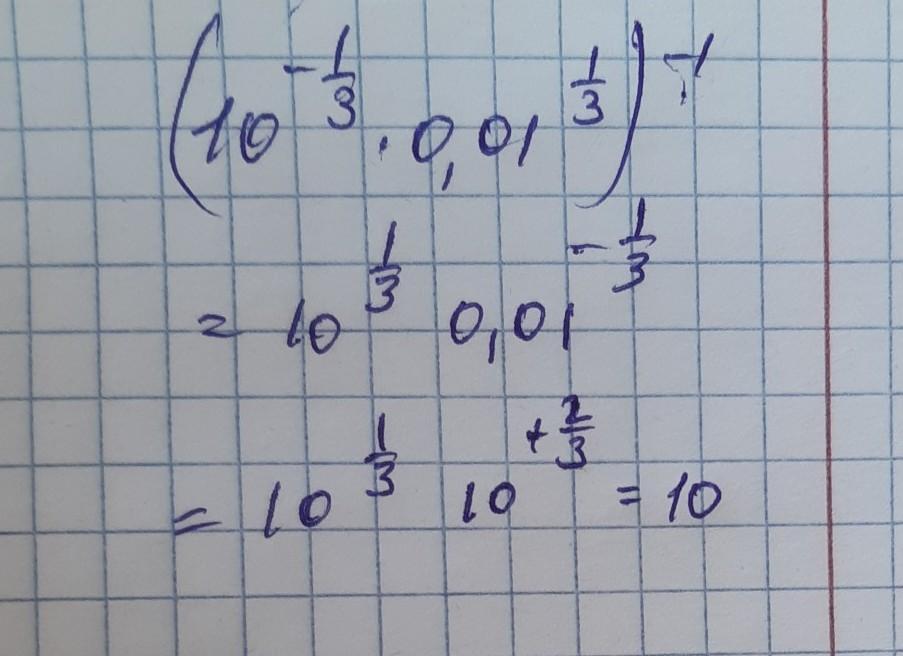 (10^{-1/3} · 0,01^{1/3})^{-1}
= 10^{1/3} 0,01^{-1/3}
= 10^{1/3} 10^{+2/3} = 10